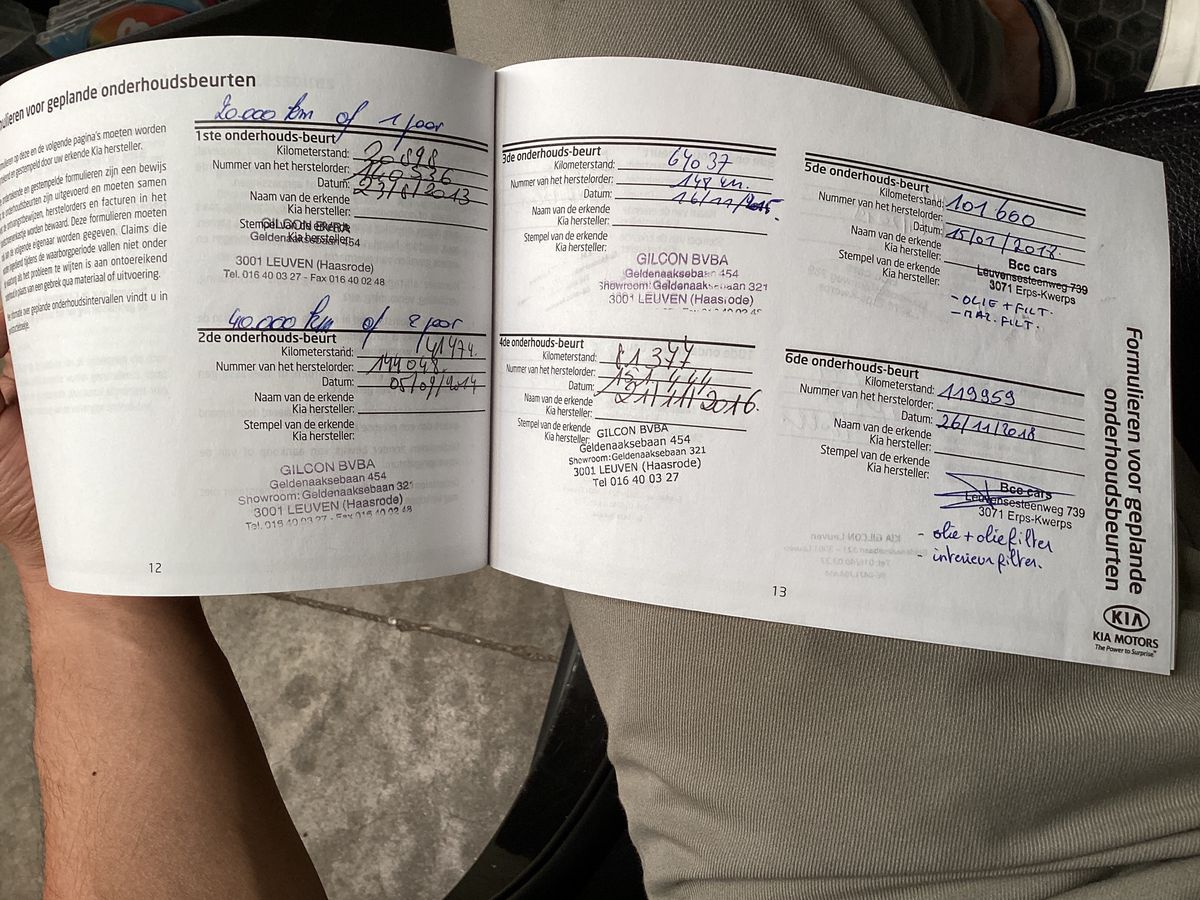 voor geplande onderhoudsbeurten
op deze en de volgende pagina's moeten worden
en gestempeld door uw erkende Kia hersteller.
en gestempelde formulieren zijn een bewijs
zijn uitgevoerd en moeten samen
herstelorders en facturen in het
worden bewaard. Deze formulieren moeten
volgende eigenaar worden gegeven. Claims die
tijdens de waarborgperiode vallen niet onder
als het probleem te wijten is aan ontoereikend
in plaats van een gebrek qua materiaal of uitvoering.
over geplande onderhoudsintervallen vindt u in
20.000 km of 1 jaar
1ste onderhouds-beurt
Kilometerstand: 20898
Nummer van het herstelorder: 140536
Datum: 23/8/2013
Naam van de erkende
Kia hersteller:
Stempel van de erkende
Kia hersteller:
GILCON BVBA
Geldenaaksebaan 454
3001 LEUVEN (Haasrode)
Tel. 016 40 03 27 - Fax 016 40 02 48
40.000 km of 2 jaar
2de onderhouds-beurt
Kilometerstand: 41474.
Nummer van het herstelorder: 144048.
Datum: 05/09/2014
Naam van de erkende
Kia hersteller:
Stempel van de erkende
Kia hersteller:
GILCON BVBA
Geldenaaksebaan 454
Showroom: Geldenaaksebaan 321
3001 LEUVEN (Haasrode)
Tel. 016 40 03 27 - Fax 016 40 02 48
12
3de onderhouds-beurt
Kilometerstand: 64037
Nummer van het herstelorder:
Datum: 16/11/2015
Naam van de erkende
Kia hersteller:
Stempel van de erkende
Kia hersteller:
GILCON BVBA
Geldenaaksebaan 454
Showroom: Geldenaaksebaan 321
3001 LEUVEN (Haasrode)
4de onderhouds-beurt
Kilometerstand: 81344
Nummer van het herstelorder:
Datum: 21/11/2016.
Naam van de erkende
Kia hersteller:
Stempel van de erkende
Kia hersteller:
GILCON BVBA
Geldenaaksebaan 454
Showroom: Geldenaaksebaan 321
3001 LEUVEN (Haasrode)
Tel 016 40 03 27
5de onderhouds-beurt
Kilometerstand: 101600
Nummer van het herstelorder:
Datum: 15/01/2018.
Naam van de erkende
Kia hersteller:
Stempel van de erkende
Kia hersteller:
Bcc cars
Leuvensesteenweg 739
3071 Erps-Kwerps
- OLIE + FILT.
6de onderhouds-beurt
Kilometerstand: 119959
Nummer van het herstelorder:
Datum: 26/11/2018
Naam van de erkende
Kia hersteller:
Stempel van de erkende
Kia hersteller:
Bcc cars
Leuvensesteenweg 739
3071 Erps-Kwerps
- olie + oliefilter
- interieurfilter.
13
Formulieren voor geplande
onderhoudsbeurten
KIA
KIA MOTORS
The Power to Surprise